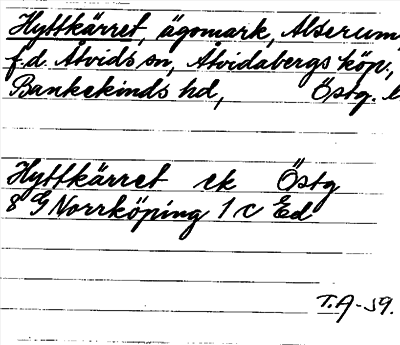 Hyttkärret, ägomark, Alserum,
f.d. Åtvids sn, Åtvidabergs köp,
Bankekinds hd, Östg. l
Hyttkärret ek Östg
8 G Norrköping 1 c Ed
T.A-59.